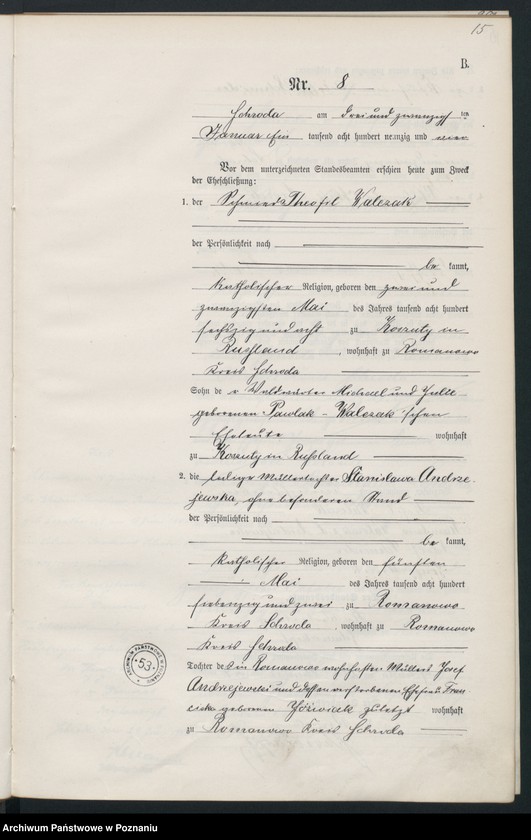 15
B.
Nr. 8
Schroda am drei und zwanzigsten
Januar ein tausend acht hundert neunzig und vier
Vor dem unterzeichneten Standesbeamten erschien heute zum Zweck
der Eheschließung:
1. der Schmied Theofil Walczak
der Persönlichkeit nach
be kannt,
katholischer Religion, geboren den zwei und
zwanzigsten Mai des Jahres tausend acht hundert
sechszig und acht zu Koszuty in
Rußland, wohnhaft zu Romanowo
Kreis Schroda
Sohn de r Waldwärter Michael und Julie
geborenen Pawlak - Walczak'schen
Eheleute wohnhaft
zu Koszuty in Rußland
2. die ledige Müllertochter Stanislawa Andrze-
jewska, ohne besonderen Stand
der Persönlichkeit nach
be kannt,
katholischer Religion, geboren den fünften
Mai des Jahres tausend acht hundert
siebenzig und zwei zu Romanowo
Kreis Schroda, wohnhaft zu Romanowo
Kreis Schroda
Tochter des in Romanowo wohnhaften Müllers Josef
Andrzejewski und dessen verstorbenen Ehefrau Fran-
ciska geborenen zuletzt wohnhaft
zu Romanowo Kreis Schroda
ARCHIWUM PAŃSTWOWE W POZNANIU
53
Archiwum Państwowe w Poznaniu